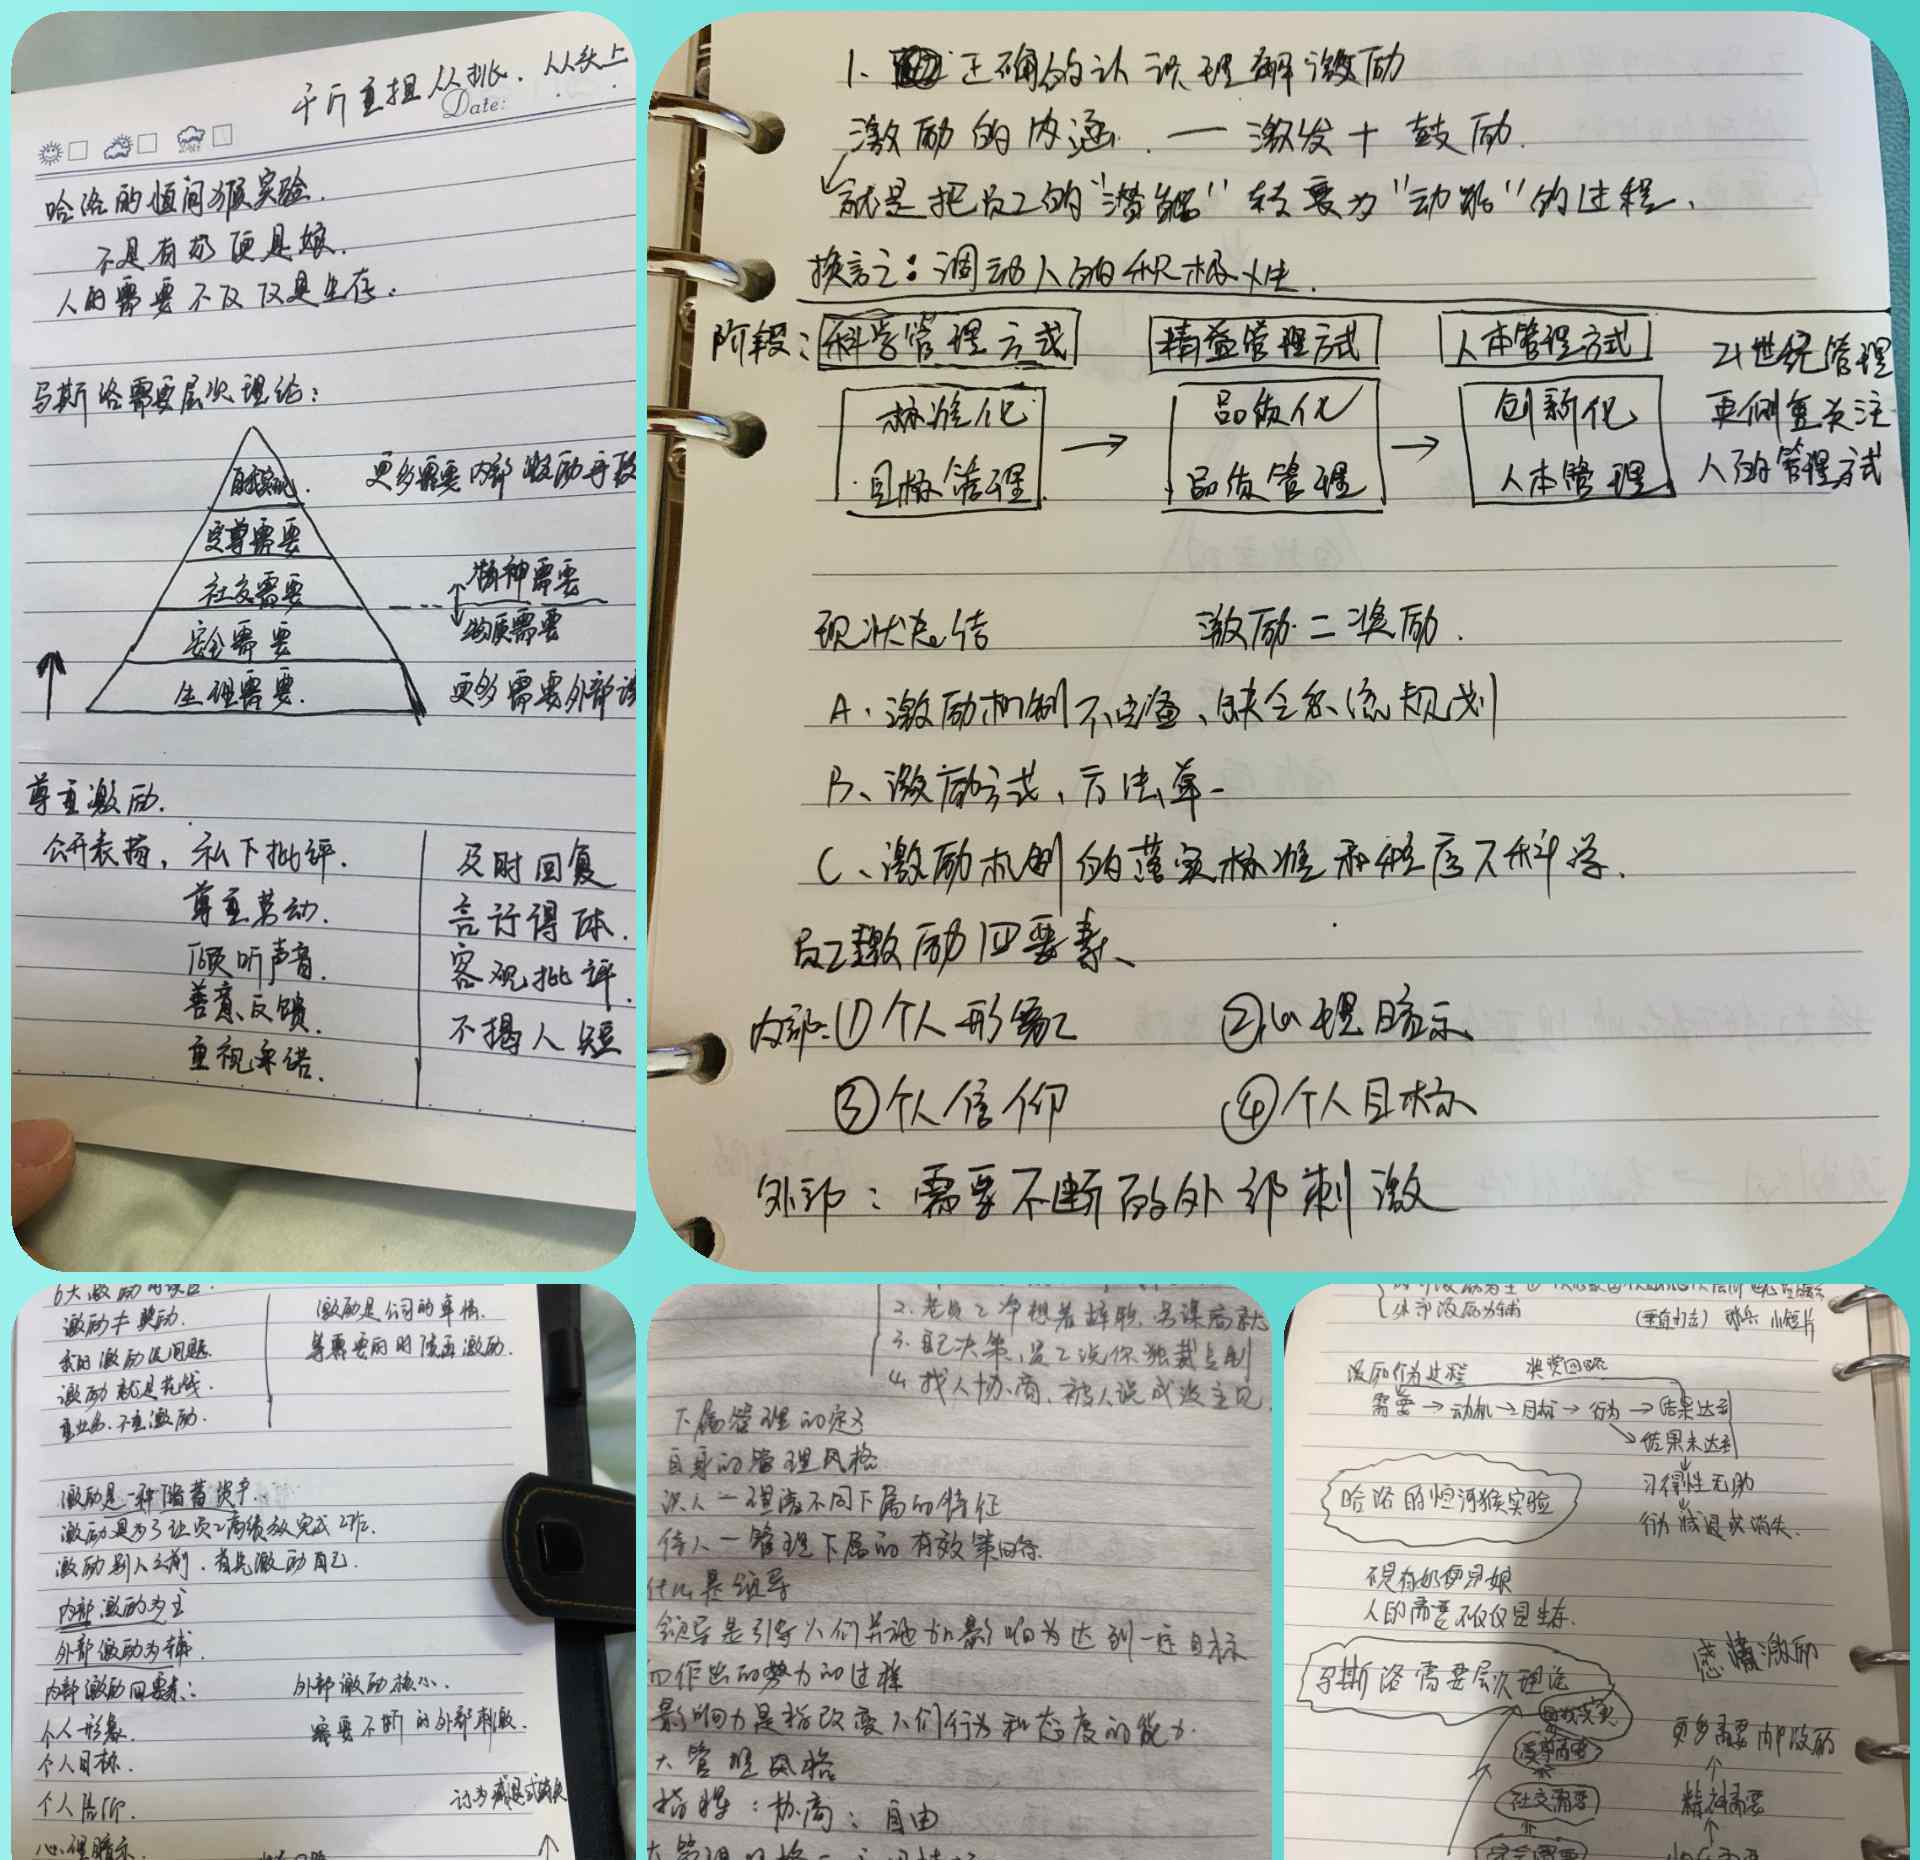 千斤重担人人挑.人人头上
Date:
哈洛的恒河猴实验.
不是有奶便是娘.
人的需要不仅仅是生存.
马斯洛需要层次理论:
自我实现.
更多需要内部激励手段
受尊需要
社交需要
精神需要
物质需要
安全需要
生理需要.
更多需要外部
尊重激励.
公开表扬,私下批评.
尊重劳动.
倾听声音.
善意反馈.
重视承诺.
及时回复
言行得体.
客观批评.
不揭人短
1、正确的认识理解激励
激励的内涵.—激发+鼓励.
就是把员工的"潜能"转变为"动能"的过程.
换言之:调动人的积极性.
阶段:科学管理方式 精益管理方式 人本管理方式
标准化 → 品质化 → 创新化
目标管理 品质管理 人本管理
21世纪管理
更侧重关注
人的管理方式
现状总结 激励=奖励.
A.激励机制不完备、缺乏系统规划
B、激励方式、方法单一
C、激励机制的落实标准和程序不科学.
员工激励四要素、
内部:①个人形象 ②心理暗示
③个人信仰 ④个人目标
外部:需要不断的外部刺激
6大激励的误区.
激励≠奖励.
我的激励没问题.
激励就是花钱.
重业务.不重激励.
激励是公司的事情.
等需要的时候再激励.
激励是一种储蓄
激励是为了让员工高绩效完成工作.
激励别人之前.首先激励自己.
内部激励为主
外部激励为辅.
内部激励四要素:
个人形象.
个人目标.
个人信仰.
心理暗示.
外部激励核心.
需要不断的外部刺激.
2.老员工净想着辞职、另谋高就
3.自己决策,员工说你独裁专制
4.找人协商、被人说成没主见.
下属管理的定义
自身的管理风格
识人—理清不同下属的特征
待人—管理下属的有效策略
什么是领导
领导是引导人们并施加影响为达到一定目标
而作出的努力的过程
影响力是指改变人们行为和态度的能力.
大管理风格
指挥:协商:自由
外部激励为辅
小短片
激励行为过程 奖赏回路
需要→动机→目标→行为→结果达到
结果未达到
习得性无助
行为减退或消失.
哈洛的恒河猴实验
不是有奶便是娘
人的需要不仅仅是生存.
马斯洛需要层次理论
感情激励
自我实现
受尊需要
社交需要
安全需要
更多需要内部激励
精神需要